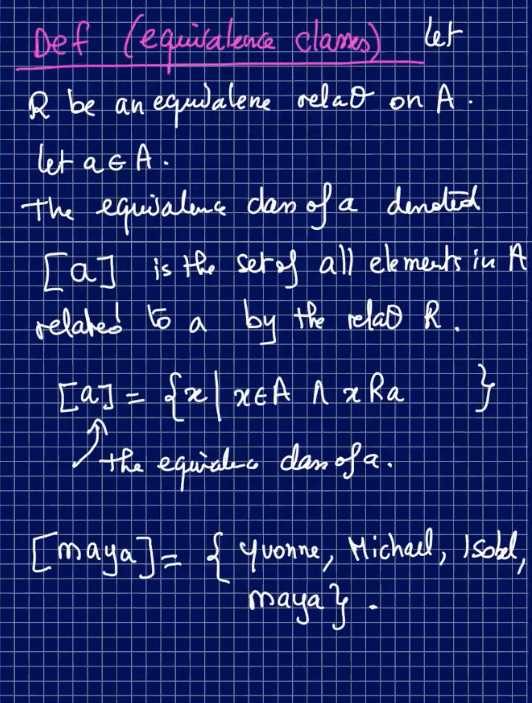 Def (equivalence classes) let
R be an equivalene relaθ on A.
let a ∈ A.
The equivalence class of a denoted
[a] is the set of all elements in A
related to a by the relaθ R.
[a] = {x | x ∈ A ∧ x R a }
the equivalec class of a.
[maya] = { Yvonne, Michael, Isobel,
maya}.